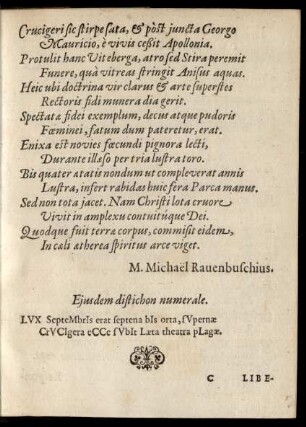 Crucigeri sic stirpe sata, & pòst juncta Georgo
Mauricio, è vivis ceßit Apollonia.
Protulit hanc Viteberga, atro sed Stira peremit
Funere, quà vitreas stringit Anisus aquas.
Heic ubi doctrina vir clarus & arte superstes
Rectoris fidi munera dia gerit.
Spectatæ fidei exemplum, decus atque pudoris
Fœminei, fatum dum pateretur, erat.
Enixa est novies fœcundi pignora lecti,
Durante illæso per tria lustra toro.
Bis quater ætatis nondum ut compleverat annis
Lustra, infert rabidas huic fera Parca manus.
Sed non tota jacet. Nam Christi lota cruore
Vivit in amplexu contuitúque Dei.
Quodque fuit terræ corpus, commisit eidem,
In cœli ætherea spiritus arce viget.
M. Michaël Rauenbuschius.
Ejusdem distichon numerale.
LVX SeptеMbrIs erat septena bIs orta, sVpernæ
CrVCIgera eCCe sVbIt Læta theatra pLagæ.
C LIBE-